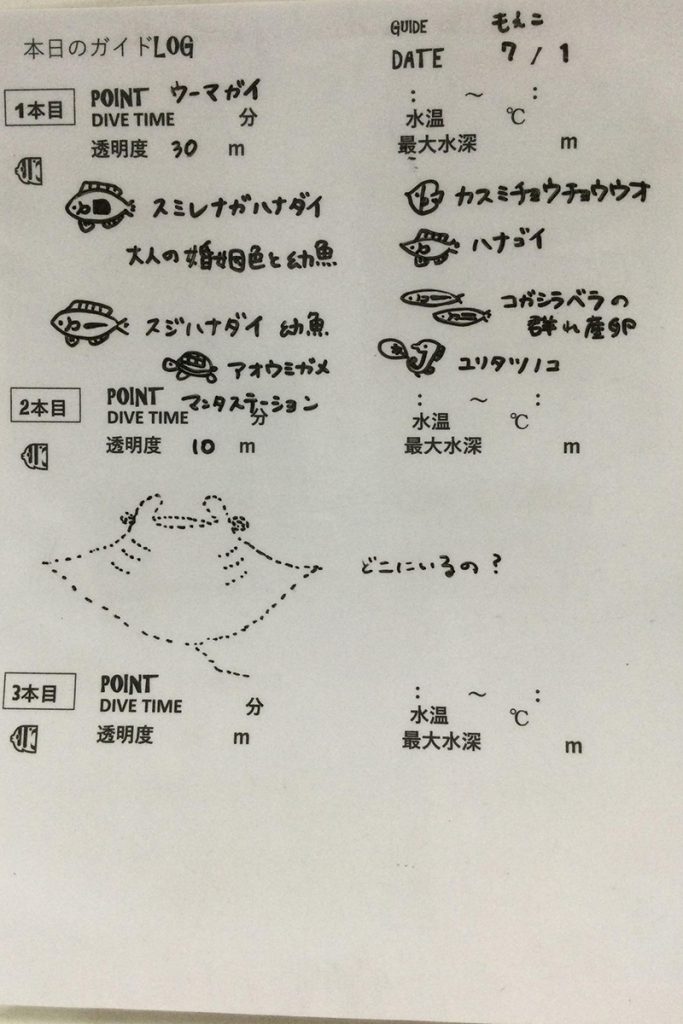 本日のガイドLOG
GUIDE もえこ
DATE 7 / 1
1本目 POINT ウーマガイ : ～ :
DIVE TIME 分 水温 ℃
透明度 30 m 最大水深 m
スミレナガハナダイ
大人の婚姻色と幼魚
スジハナダイ 幼魚
アオウミガメ
カスミチョウチョウウオ
ハナゴイ
コガシラベラの
群れ産卵
ユリタツノコ
2本目 POINT マンタステーション : ～ :
DIVE TIME 分 水温 ℃
透明度 10 m 最大水深 m
どこにいるの？
3本目 POINT : ～ :
DIVE TIME 分 水温 ℃
透明度 m 最大水深 m